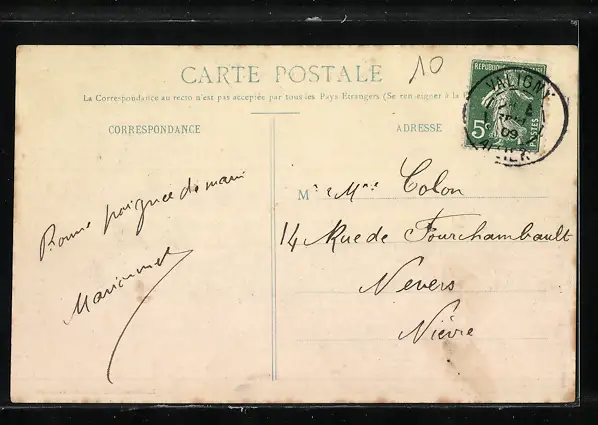 CARTE POSTALE
10
La Correspondance au recto n'est pas acceptée par tous les Pays Etrangers (Se renseigner à la
CORRESPONDANCE
ADRESSE
REPUBLIQUE
5c
POSTES
VALIGNY
09
ALLIER
Bonne poignée de main
M
Mr Mme Colon
14 Rue de Fourchambault
Nevers
Nièvre